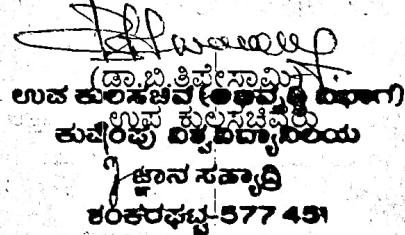 (ಡಾ.ಬಿ.ತಿಪ್ಪೇಸ್ವಾಮಿ)
ಉಪ ಕುಲಸಚಿವ (ಅಭಿವೃದ್ಧಿ ವಿಭಾಗ)
ಉಪ ಕುಲಸಚಿವರು
ಕುವೆಂಪು ವಿಶ್ವವಿದ್ಯಾನಿಲಯ
ಜ್ಞಾನ ಸಹ್ಯಾದ್ರಿ
ಶಂಕರಘಟ್ಟ-577 451